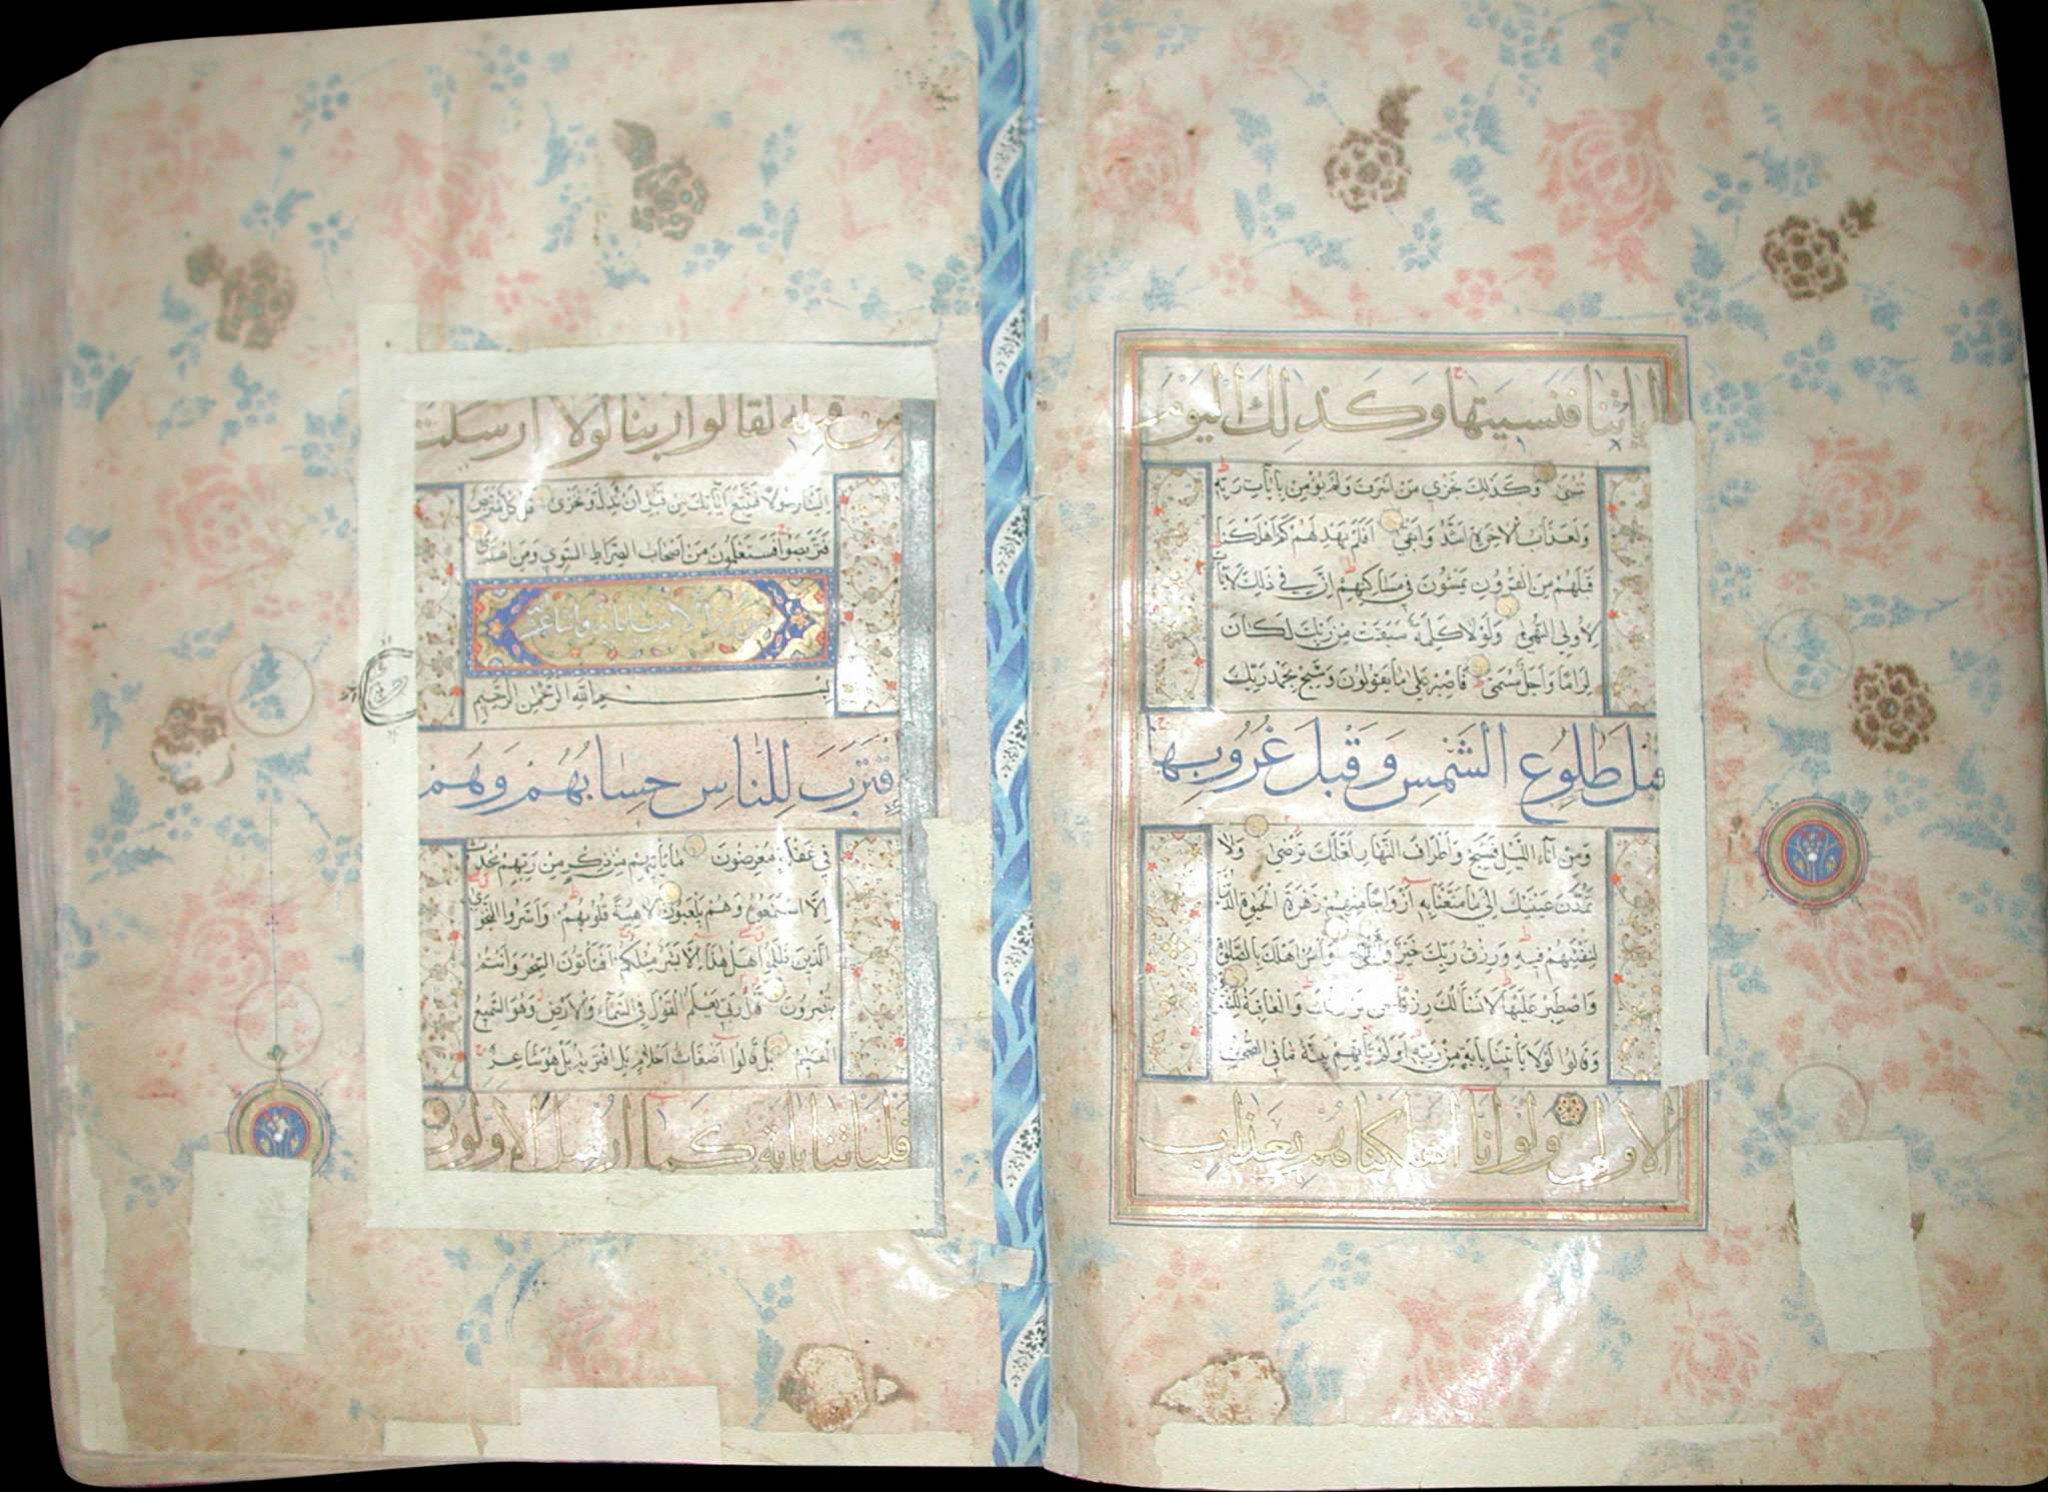 اياتنا فنسيتها وكذلك اليوم
تنسى وكذلك نجزي من اسرف ولم يؤمن بايات ربه
ولعذاب الاخرة اشد وابقى افلم يهد لهم كم اهلكنا
قبلهم من القرون يمشون في مساكنهم ان في ذلك لايات
لاولي النهى ولولا كلمة سبقت من ربك لكان
لزاما واجل مسمى فاصبر على ما يقولون وسبح بحمد ربك
قبل طلوع الشمس وقبل غروبها
ومن آناء الليل فسبح واطراف النهار لعلك ترضى ولا
تمدن عينيك الى ما متعنا به ازواجا منهم زهرة الحيوة الدنيا
لنفتنهم فيه ورزق ربك خير وابقى وامر اهلك بالصلوة
واصطبر عليها لا نسألك رزقا نحن نرزقك والعاقبة للتقوى
وقالوا لولا يأتينا بآية من ربه اولم تأتهم بينة ما في الصحف
الاولى ولو انا اهلكناهم بعذاب
من قبله لقالوا ربنا لولا ارسلت
الينا رسولا فنتبع آياتك من قبل ان نذل ونخزى قل كل متربص
فتربصوا فستعلمون من اصحاب الصراط السوي ومن اهتدى
سورة الانبياء مائة واثنتا عشر
بسم الله الرحمن الرحيم
اقترب للناس حسابهم وهم
في غفلة معرضون ما يأتيهم من ذكر من ربهم محدث
الا استمعوه وهم يلعبون لاهية قلوبهم واسروا النجوى
الذين ظلموا هل هذا الا بشر مثلكم افتأتون السحر وانتم
تبصرون قل ربي يعلم القول في السماء والارض وهو السميع
العليم بل قالوا اضغاث احلام بل افتريه بل هو شاعر
فليأتنا بآية كما ارسل الاولون